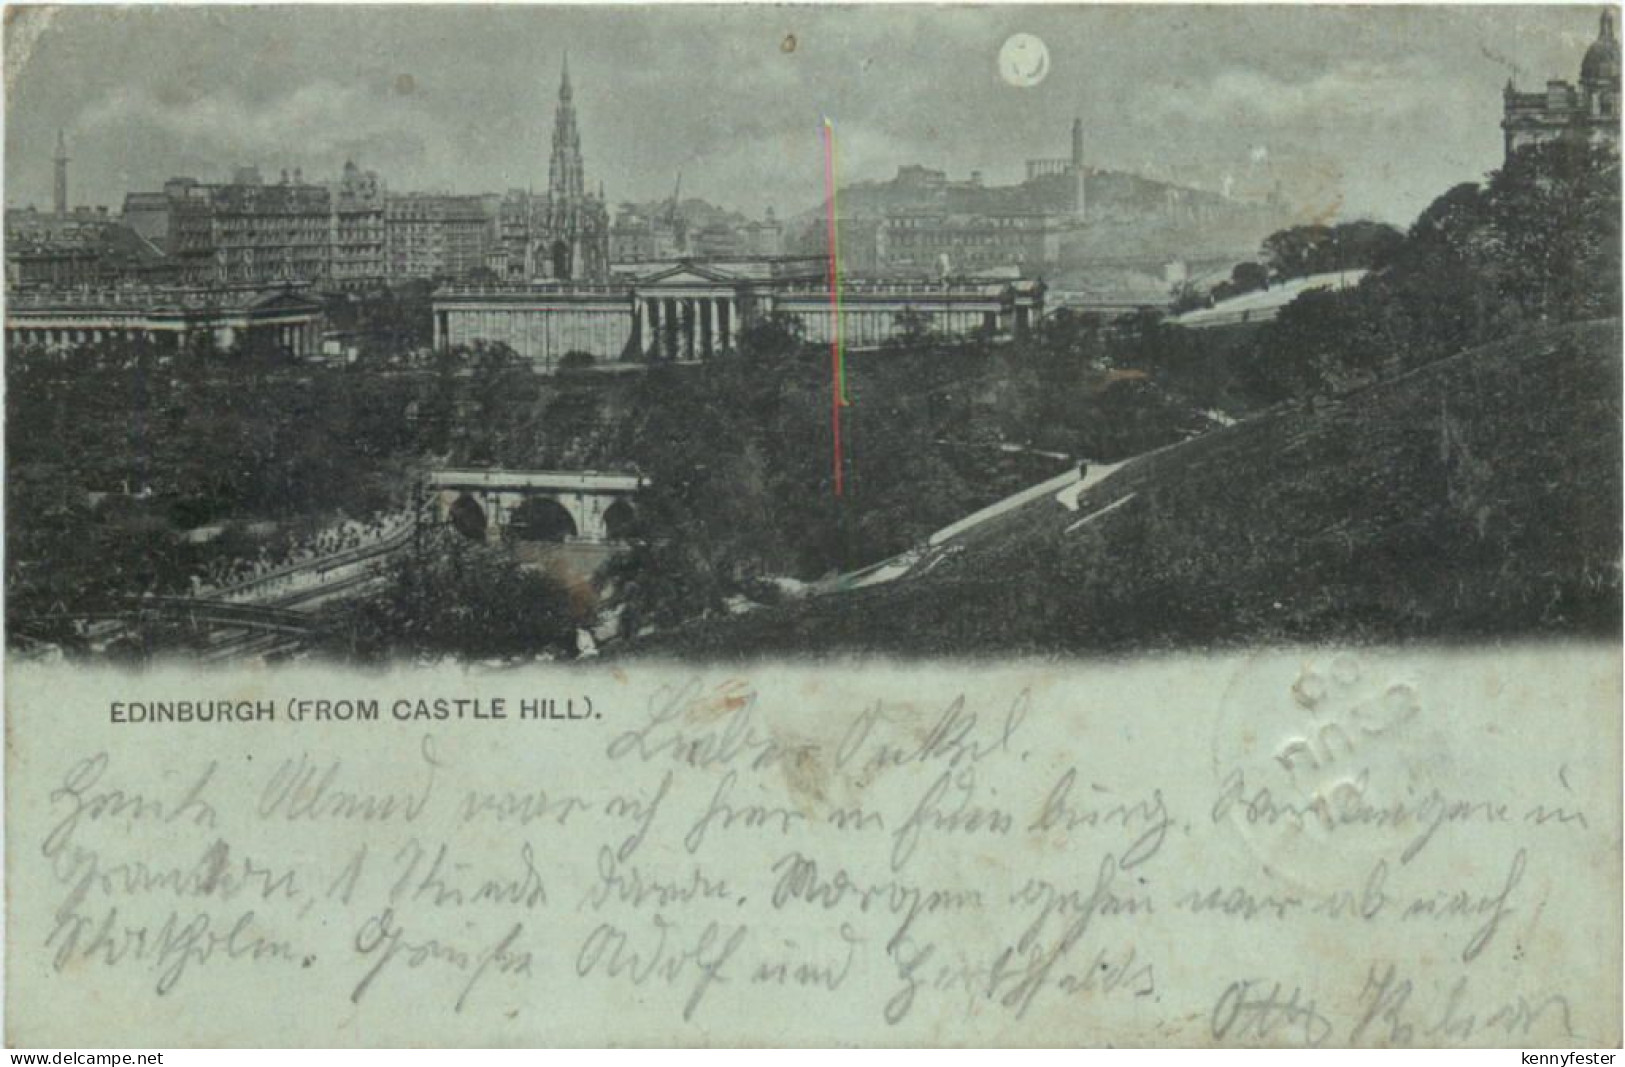 EDINBURGH (FROM CASTLE HILL).
Lieber Onkel.
Heute Abend war ich hier in Edinburg. Wir liegen in
Granton, 1 Stunde davon. Morgen gehen wir ab nach
Stockholm. Grüße Adolf und
Otto
www.delcampe.net
kennyfester